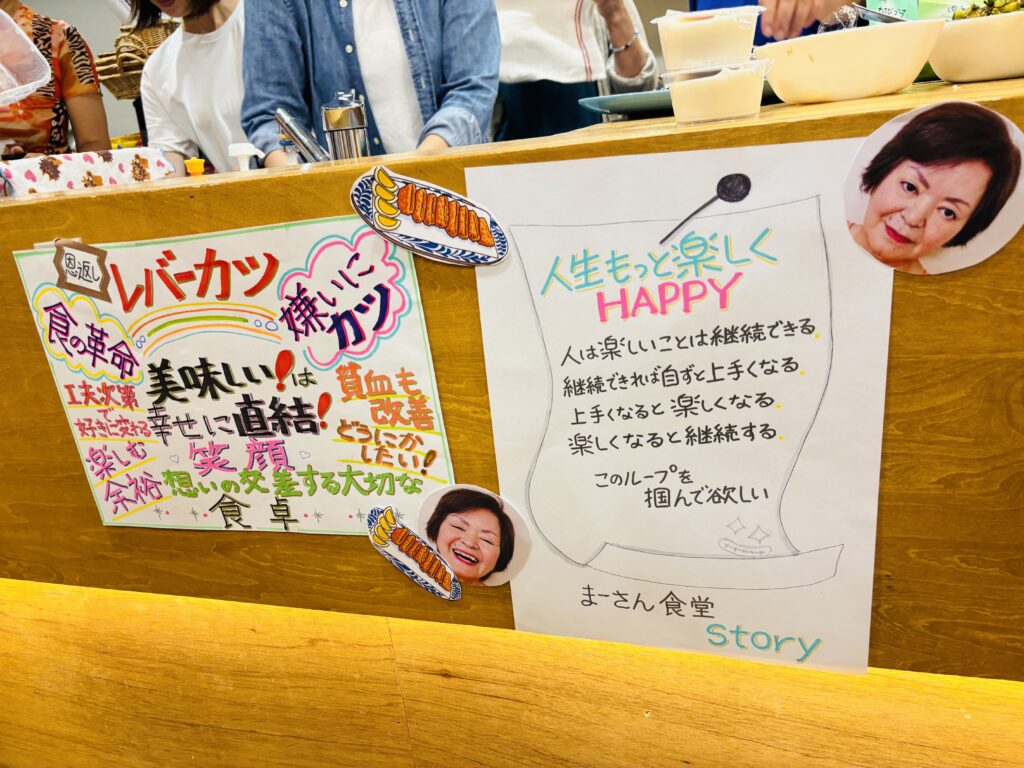 恩返し
レバーカツ
嫌いに
カツ
食の革命
美味しい!は
幸せに直結!
貧血も
改善
どうにか
したい!
工夫次第
で
好きに変わる
楽しむ
余裕
笑顔
想いの交差する大切な
食卓
人生もっと楽しく
HAPPY
人は楽しいことは継続できる。
継続できれば自ずと上手くなる。
上手くなると楽しくなる。
楽しくなると継続する。
このループを
掴んで欲しい
まーさん食堂
story